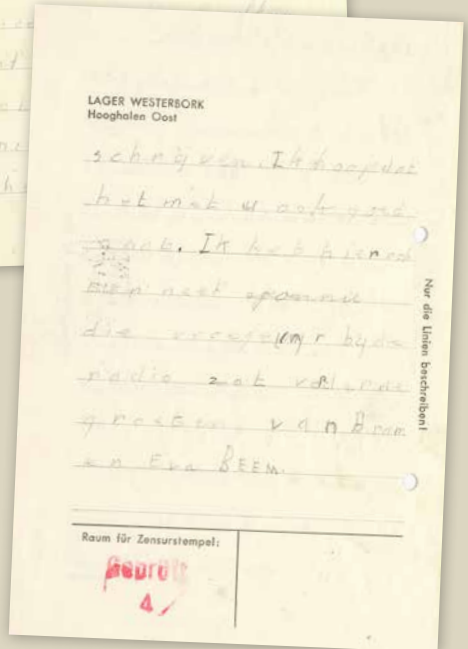 LAGER WESTERBORK
Hooghalen Oost
schrijven. Ik hoop dat
het met u ook goed
gaat. Ik heb hier
een neef
die vroeger by de
radio zat
groeten van Bram
en Eva BEEM.
Nur die Linien beschreiben!
Raum für Zensurstempel:
Geprüft
4